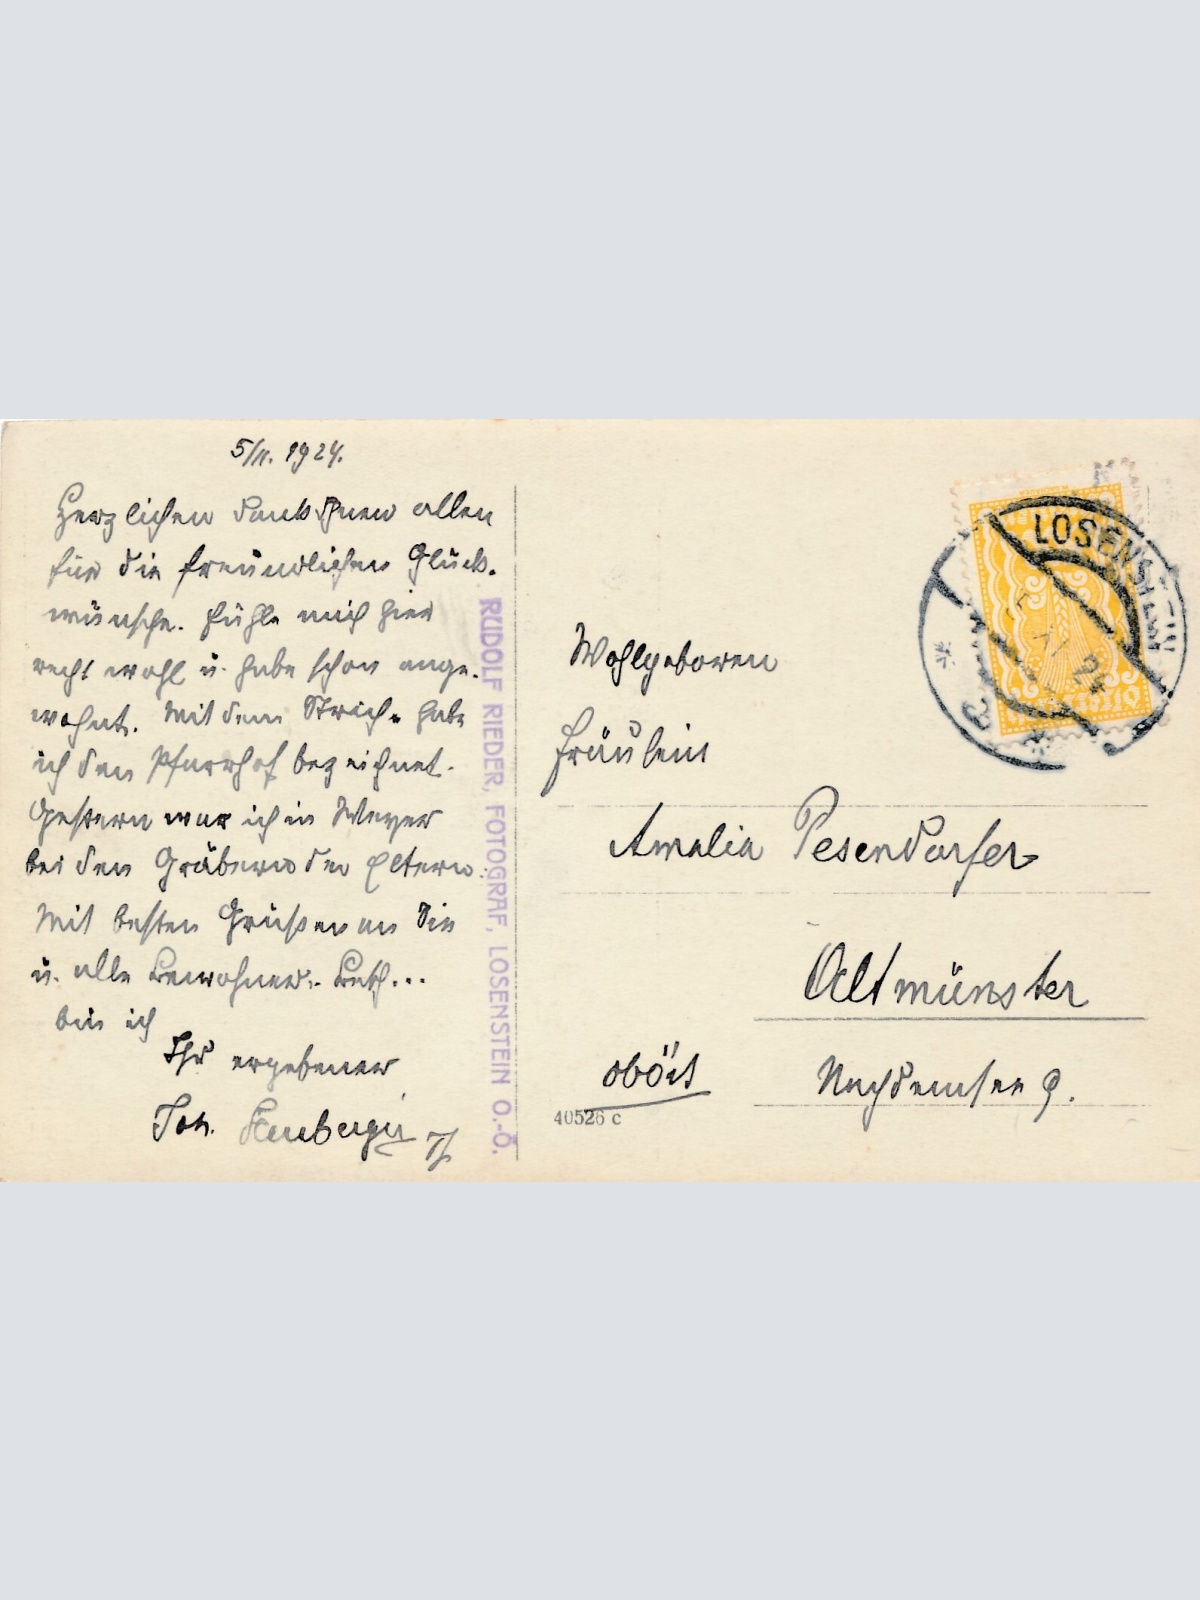 5/11. 1924.
Herzlichen Dank Ihnen allen
für die freundlichen Glück-
wünsche. Fühle mich hier
recht wohl u. habe schon ange-
wohnt. Mit dem Strich habe
ich den Pfarrhof bezeichnet.
Gestern war ich in Weyer
bei den Gräbern der Eltern.
Mit besten Grüßen an Sie
u. alle Bewohner
bin ich
Ihr ergebener
Joh.
RUDOLF RIEDER, FOTOGRAF, LOSENSTEIN O.-Ö.
LOSENSTEIN
24
Wohlgeboren
Fräulein
Amalia Pesendorfer
Altmünster
40526 c